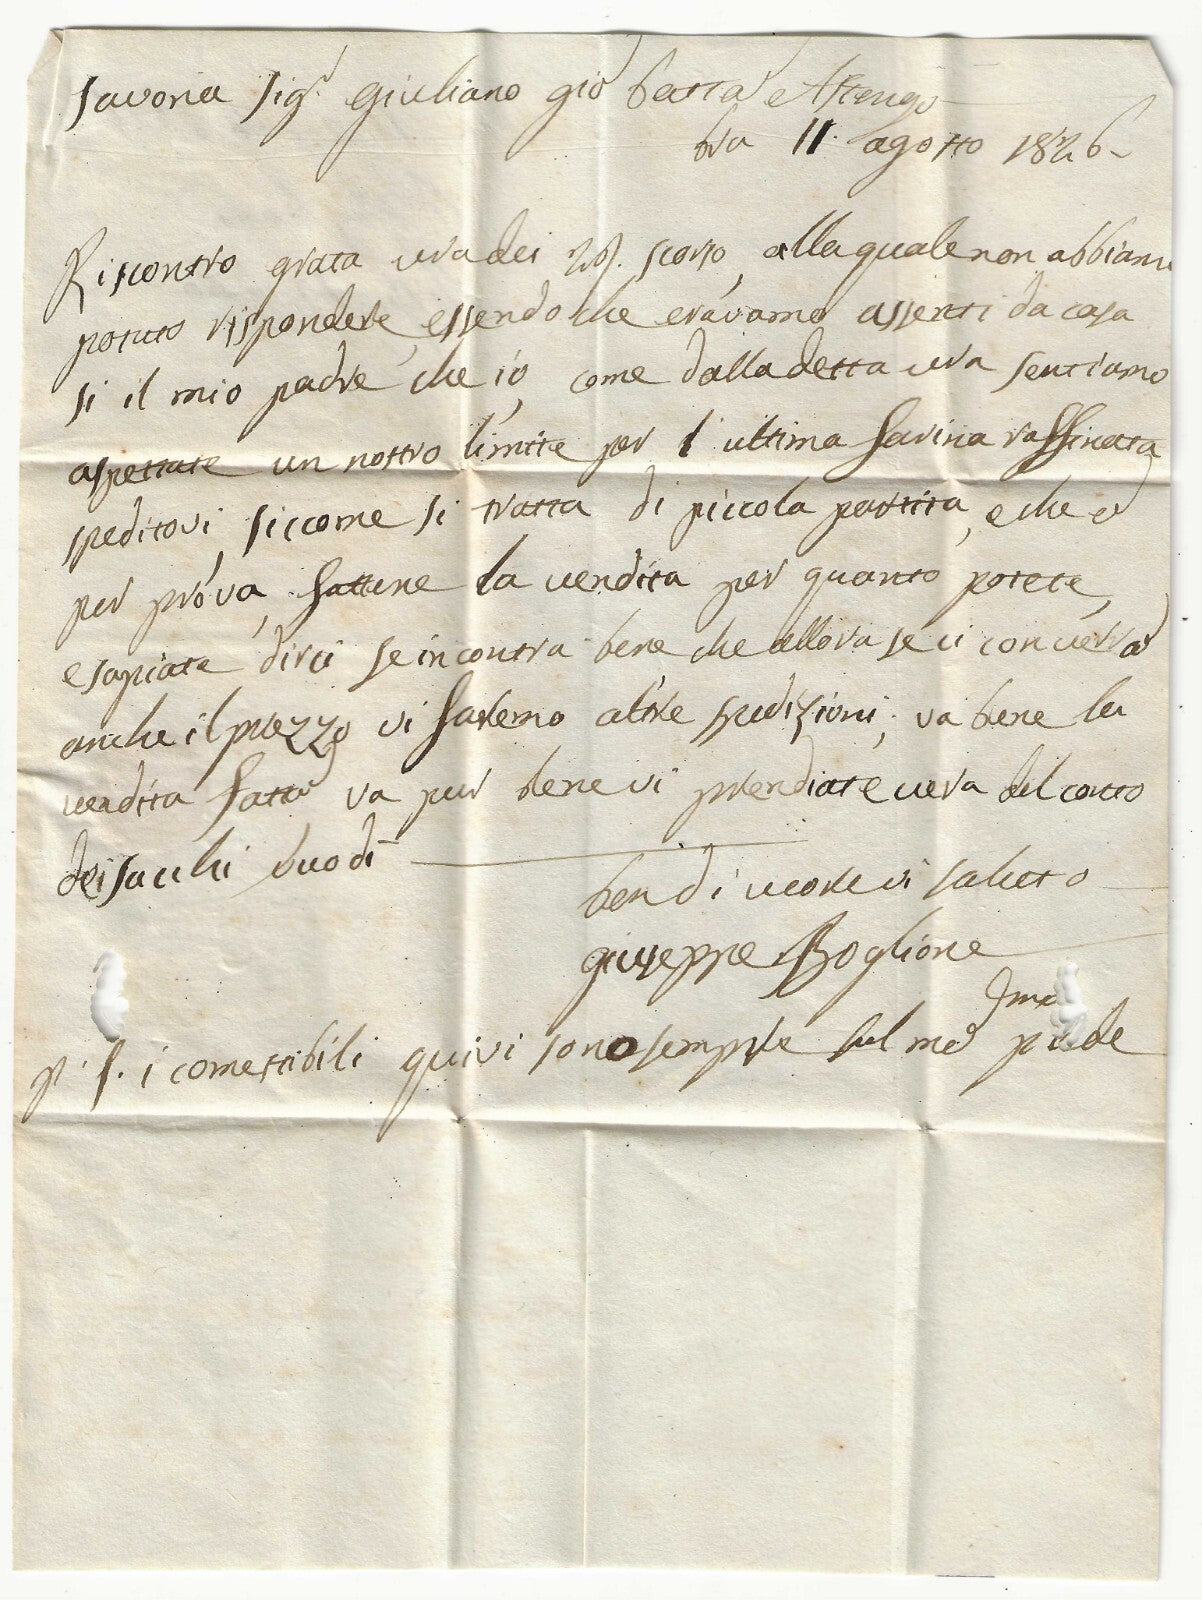 Savona Sig.r Giuliano Gio Batta Astengo
bra 11 agosto 1826
Riscontro grata vra dei scorso, alla quale non abbiamo
potuto rispondere, essendo che eravamo assenti da casa
si il mio padre che io, come dalla detta vra sentiamo
aspettate un nostro limite per l'ultima farina raffinata
speditovi, siccome si tratta di piccola partita, e che è
per prova, fattene la vendita per quanto potete,
e sapiate dirci se incontra bene che allora se ci converrà
anche il prezzo vi faremo altre spedizioni, va bene la
vendita fatta va pur bene vi prendiate cura del conto
dei sacchi vuodi
ben di cuore vi saluto
giuseppe Boglione
p. S. i comestibili quivi sono sempre sul med.mo piede